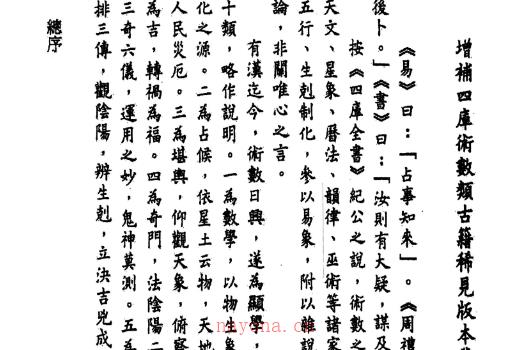 增補四庫術數類古籍稀見版本
《易》曰：「占事知來」。《周禮
後卜。」《書》曰：「汝則有大疑，謀及
按《四庫全書》紀公之說，術數之
天文、星象、曆法、韻律、巫術等諸家
五行、生剋制化，參以易象，附以雜說
論，非關唯心之言。
有漢迄今，術數日興，遂為顯學，
十類，略作說明。一為數學，以物
化之源。二為占候，依星土云物，天
人民災厄。三為堪輿，仰觀天象，俯察
為吉，轉禍為福。四為奇門，法陰陽二
三奇六儀，運用之妙，鬼神莫測。五為
排三傳，觀陰陽，辨生剋，立決吉兇成
總序
nayona.cn